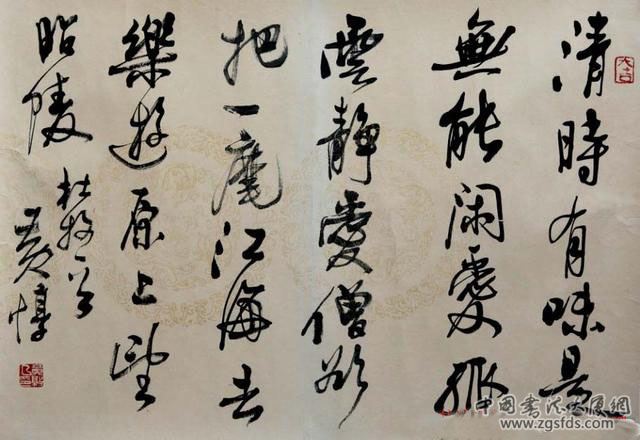 清時有味是
無能閑愛孤
雲靜愛僧欲
把一麾江海去
樂遊原上望
昭陵
杜牧
黃惇
中国书法大厦网
www.zgsfds.com